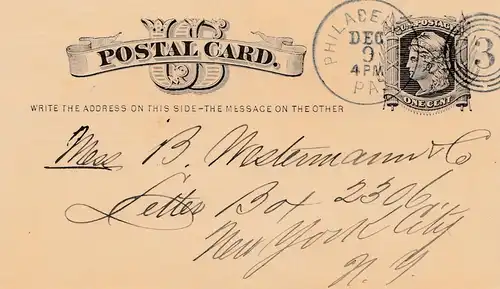 U.S. POSTAGE
PHILADE
DEC
9
4PM
PA
3
U S
POSTAL CARD.
ONE CENT
WRITE THE ADDRESS ON THIS SIDE-THE MESSAGE ON THE OTHER
Mess B. Westermann & Co
Letter Box 2306
New York City
N. Y.